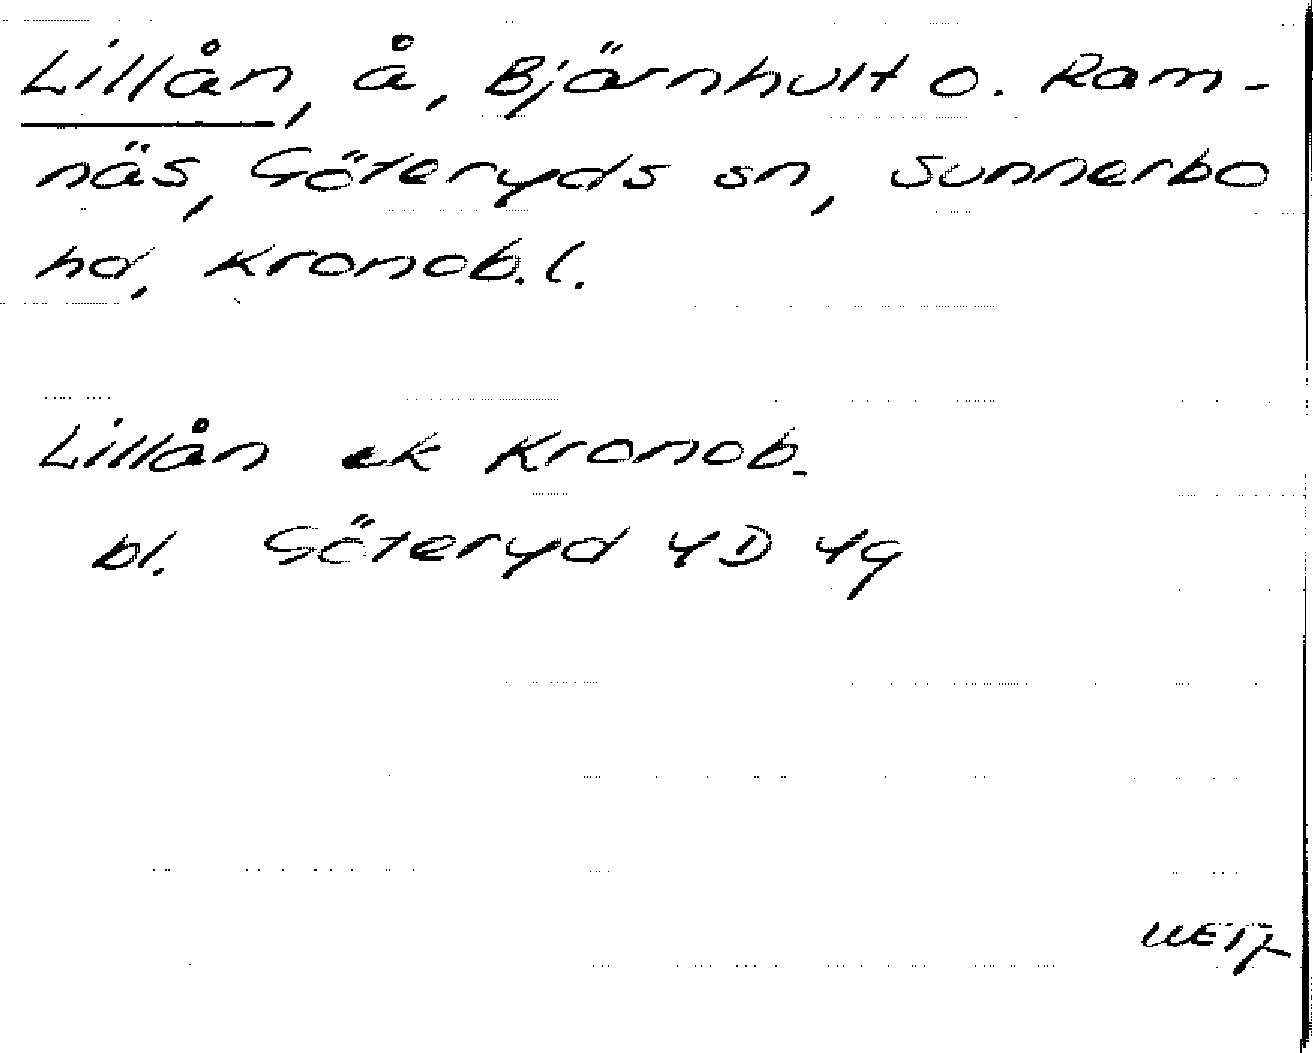 Lillån, å, Bjärnhult o. Ram-
näs, Göteryds sn, Sunnerbo
hd, Kronob. l.
Lillån ek Kronob.
bl. Göteryd 4D 4g